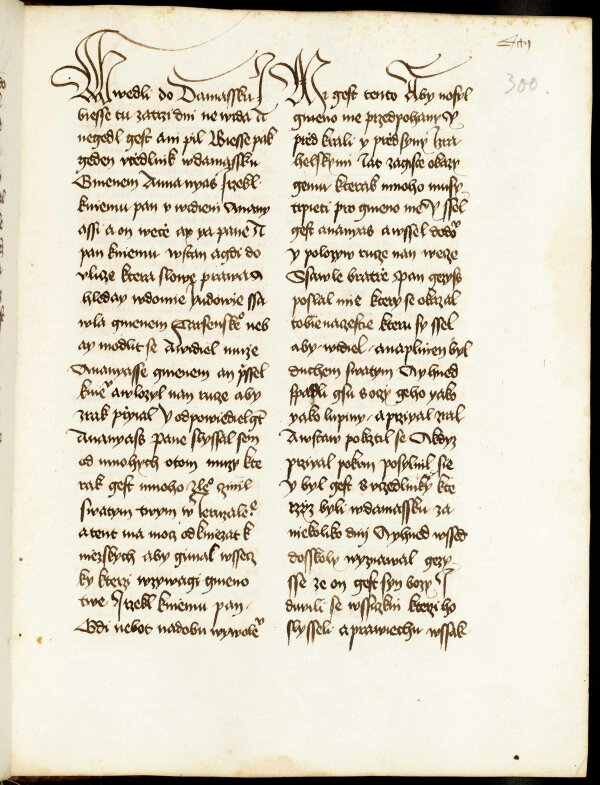 300
wedli do Damassku I
biesse tu za trzi dni ne wida A
negedl gest ani pil Biesse pak
geden vcedlnik w damassku
Gmenem Ananyas I rzekl
k niemu pan v widieni Anany
assi a on wece ay ya pane A
pan k niemu wstan a gdi do
vlicze ktera slowe prawa A
hleday w domie Judowie ssa
wla gmenem neb
ay modlit se A widiel muze
Ananiasse gmenem an yssel
a wlozyl nan rucze aby
zrak przyial Y odpowiediel gt
Ananyass Pane slyssal sem
od mnohych o tom muzy kte
rak gest mnoho zleo czinil
swatym twym w Jeruzaleě
a tent ma mocz od kniezat k
niezskych aby gimal wssecz
ky kterzi wzywagi gmeno
twe I rzekl k niemu pan
Gdi nebot nadobu wywole
Mi gest tento Aby nosyl
gmeno me przed pohany Y
przed krali y przed syny Izra
helskymi Jat zagiste okazy
gemu kterak mnoho musy
trpieti pro gmeno me Y ssel
gest ananyas a wssel do do
y polozyw rucze nan wecze
Ssawle bratrze Pan gezyss
poslal mie ktery se okazal
tobie na czestie kteru sy ssel
aby widiel a naplnien byl
duchem swatym A yhned
spadli gsu s oczy geho yako
yako lupiny a przyial zrak
A wstaw pokrztil se A kdyz
przyial pokrm posylnil sie
Y byl gest s vczedlniky kte
rzyz byli w damassku za
niekoliko dnij A yhned wssed
do sskoly wyznawal gezy
sse ze on gest syn bozy I
diwili se wssiczkni kterzi ho
slysseli a prawiechu wssak